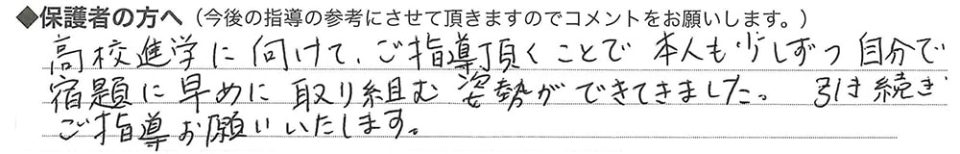 ◆保護者の方へ（今後の指導の参考にさせて頂きますのでコメントをお願いします。）
高校進学に向けて、ご指導頂くことで 本人も少しずつ自分で
宿題に早めに取り組む姿勢ができてきました。 引き続き
ご指導お願いいたします。